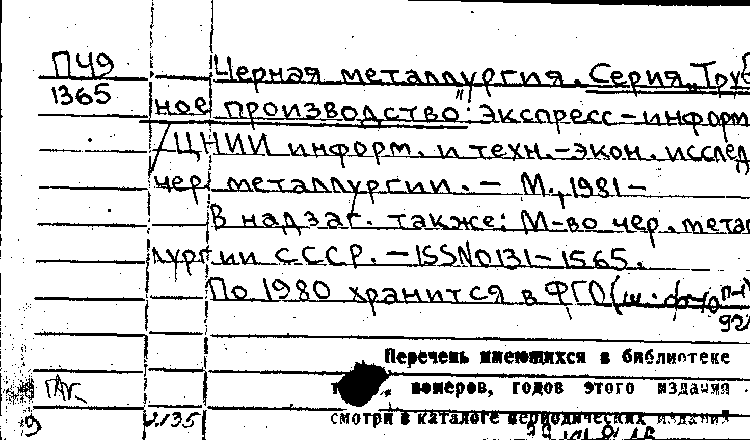 ПЧ9 Черная металлургия. Серия „Труб
1365 ное производство": Экспресс-информ
/ЦНИИ информ. и техн.-экон. исслед
чер. металлургии. – М., 1981 –
В надзаг. также: М-во чер. метал
лургии СССР. – ISSN 0131-1565.
По 1980 хранится в ФГО (ш.
Перечень имеющихся в библиотеке
номеров, годов этого издания
смотри в каталоге периодических изданий
9